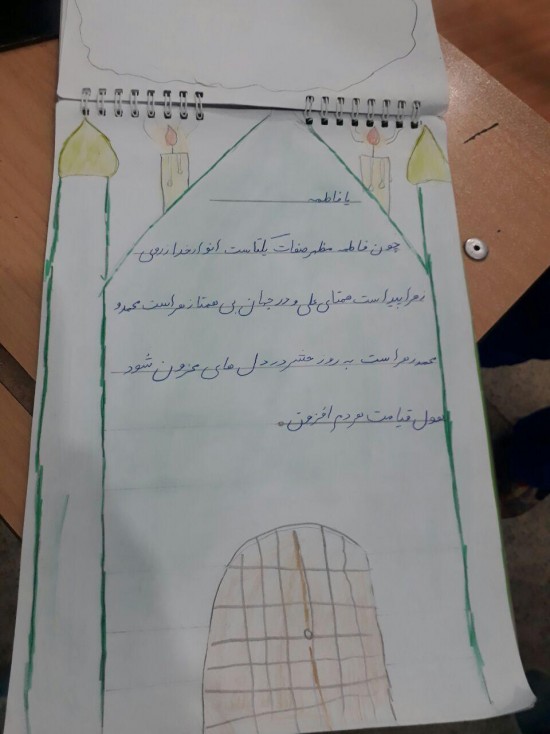 یا فاطمه
چون فاطمه مظهر صفات یکتاست انوار خدا ز روی
زهرا پیداست همتای علی و در جهان بی همتا زهراست محمد و
محمد زهراست به روز حشر در دل های محزون شود
هول قیامت هر دم افزون.